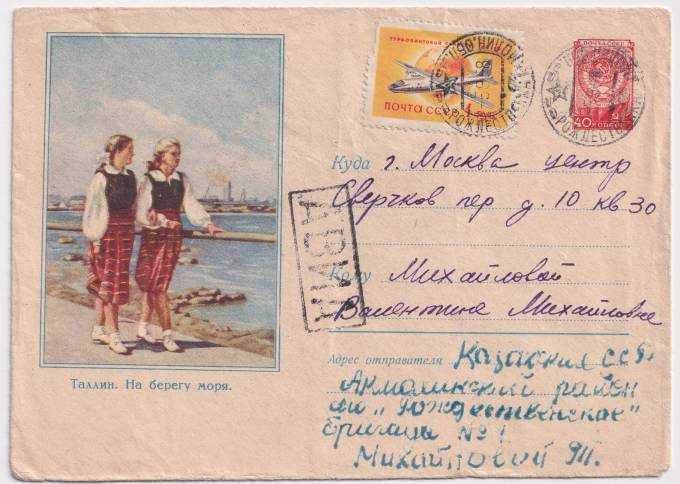 ПОЧТА СССР
ПОЧТА СССР
40 КОПЕЕК
АВИА
Куда г. Москва центр
Сверчков пер д. 10 кв 30
Кому Михайловой
Валентине Михайловне
Адрес отправителя Казахская ССР
Акмолинский район
"Рождественское"
бригада № 1
Михайловой
Таллин. На берегу моря.